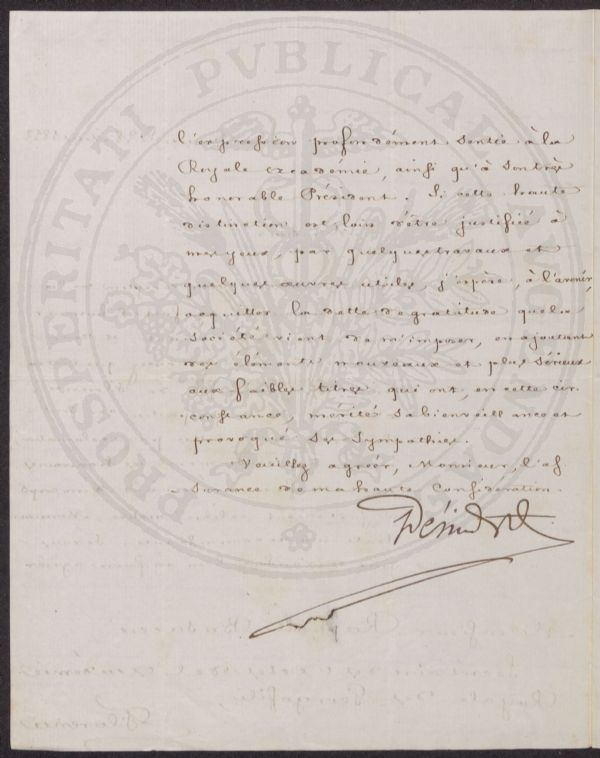 PROSPERITATI PVBLICAE AVGENDAE
l'expression profondément sentie à la
Royale académie, ainsi qu'à son très
honorable Président. Si cette haute
distinction est loin d'être justifiée à
mes yeux, par quelques travaux et
quelques œuvres utiles, j'espère, à l'avenir,
acquitter la dette de gratitude que la
Société vient de m'imposer, en ajoutant
des éléments nouveaux et plus sérieux
aux faibles titres qui ont, en cette cir
constance, mérité sa bienveillance et
provoqué ses sympathies.
Veuillez agréer, Monsieur, l'as
surance de ma haute considération.